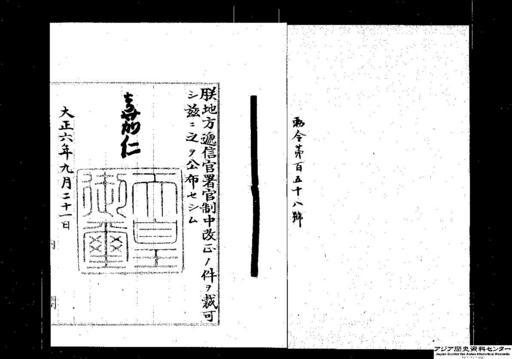 勅令第百五十八號
朕地方遞信官署官制中改正ノ件ヲ裁可
シ茲ニ之ヲ公布セシム
嘉仁
天皇
御璽
大正六年九月二十一日
アジア歴史資料センター
Japan Center for Asian Historical Records